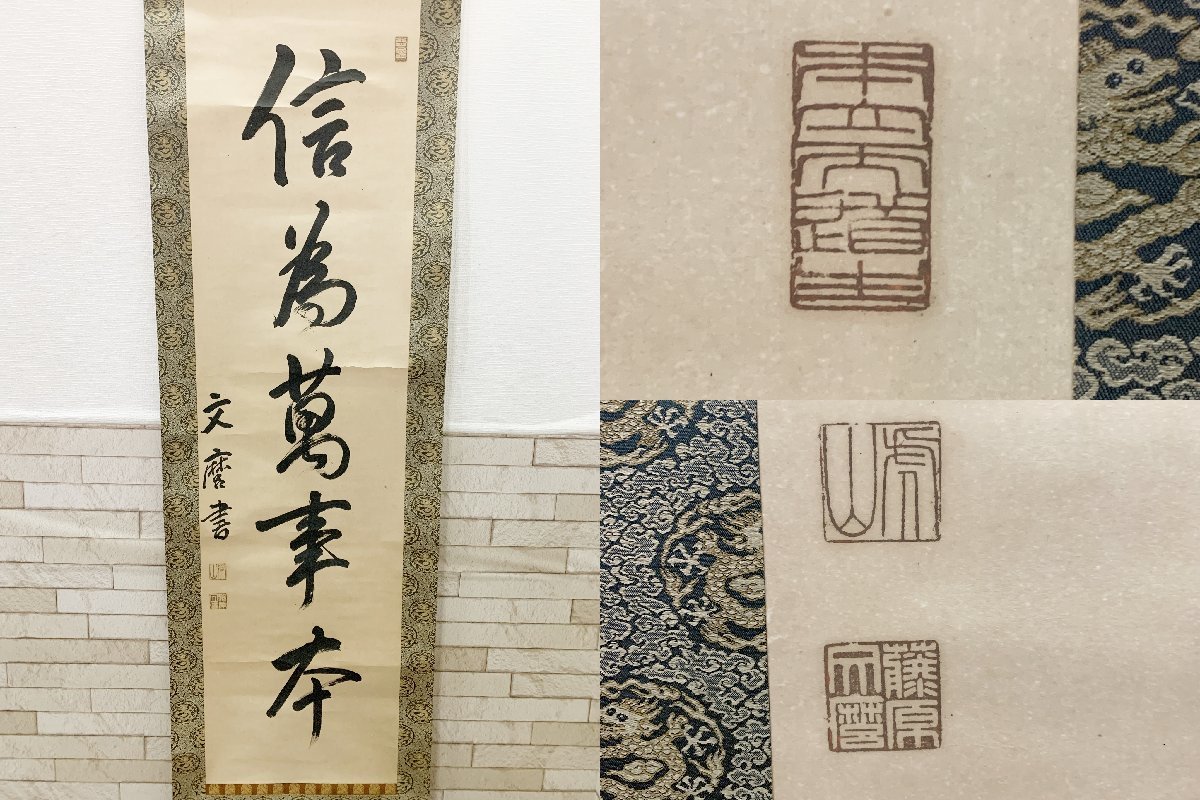 信為萬事本
文麿書
山
藤原文麿